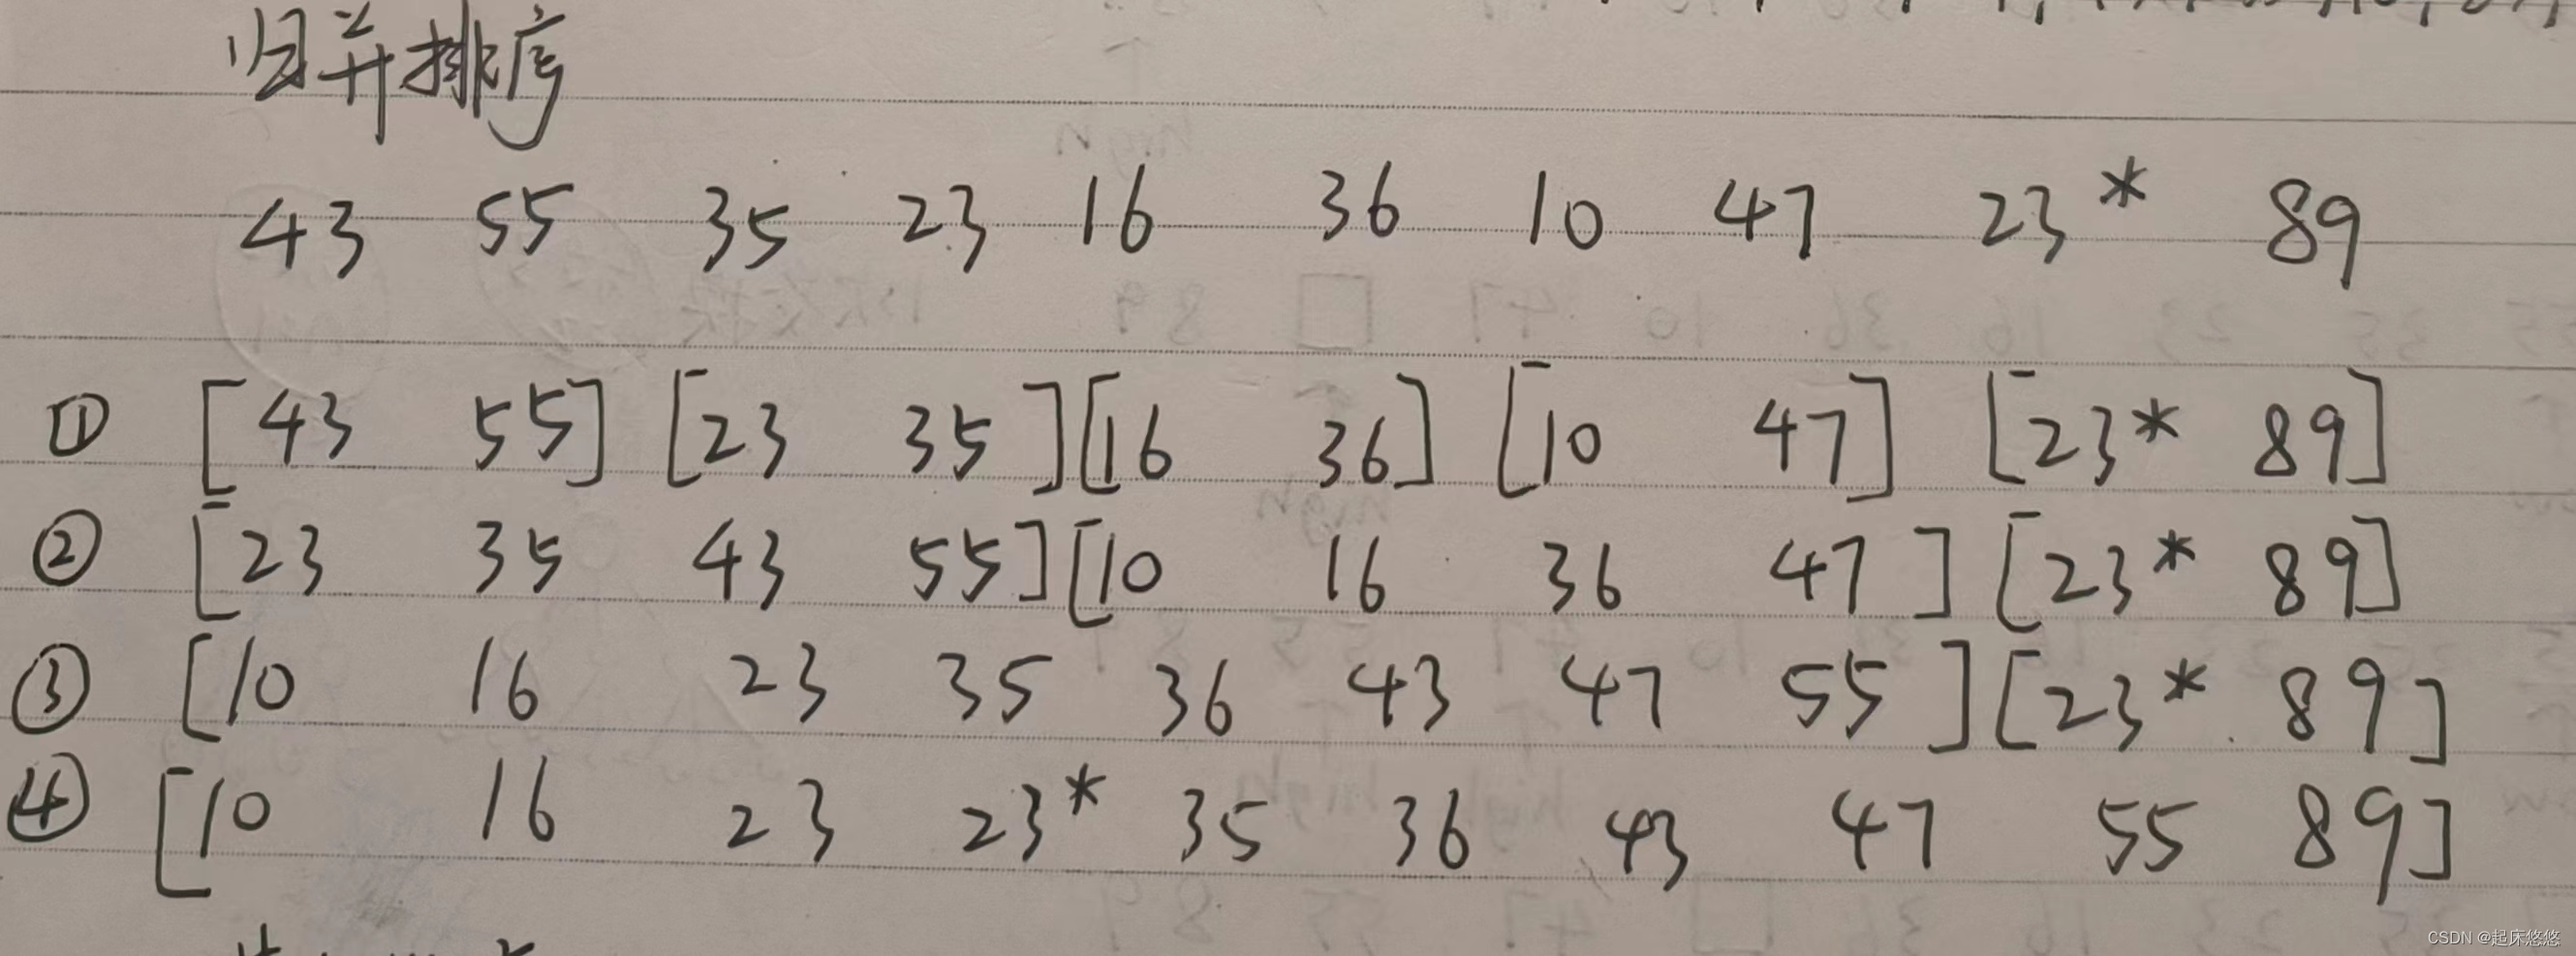 归并排序
43 55 35 23 16 36 10 47 23* 89
① [43 55] [23 35] [16 36] [10 47] [23* 89]
② [23 35 43 55] [10 16 36 47] [23* 89]
③ [10 16 23 35 36 43 47 55] [23* 89]
④ [10 16 23 23* 35 36 43 47 55 89]
CSDN @起床悠悠